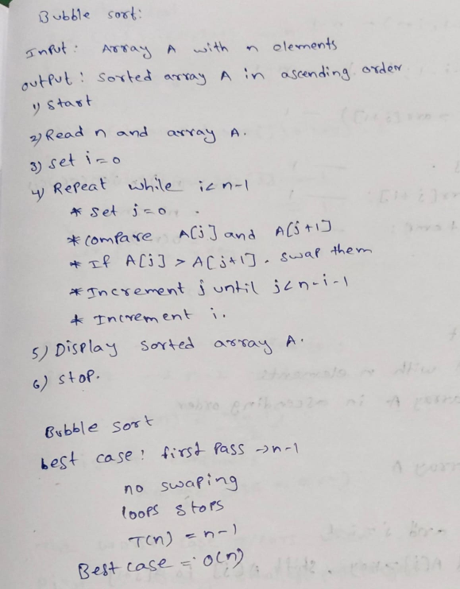 Bubble sort:
Input: Array A with n elements
output: sorted array A in ascending order
1) Start
2) Read n and array A.
3) set i=0
4) Repeat while i<n-1
* set j=0
* compare A[j] and A[j+1]
* If A[j] > A[j+1]. swap them
* Increment j until j<n-i-1
* Increment i.
5) Display sorted array A.
6) stop.
Bubble sort
best case: first pass →n-1
no swaping
loops stops
T(n) = n-1
Best case = O(n)